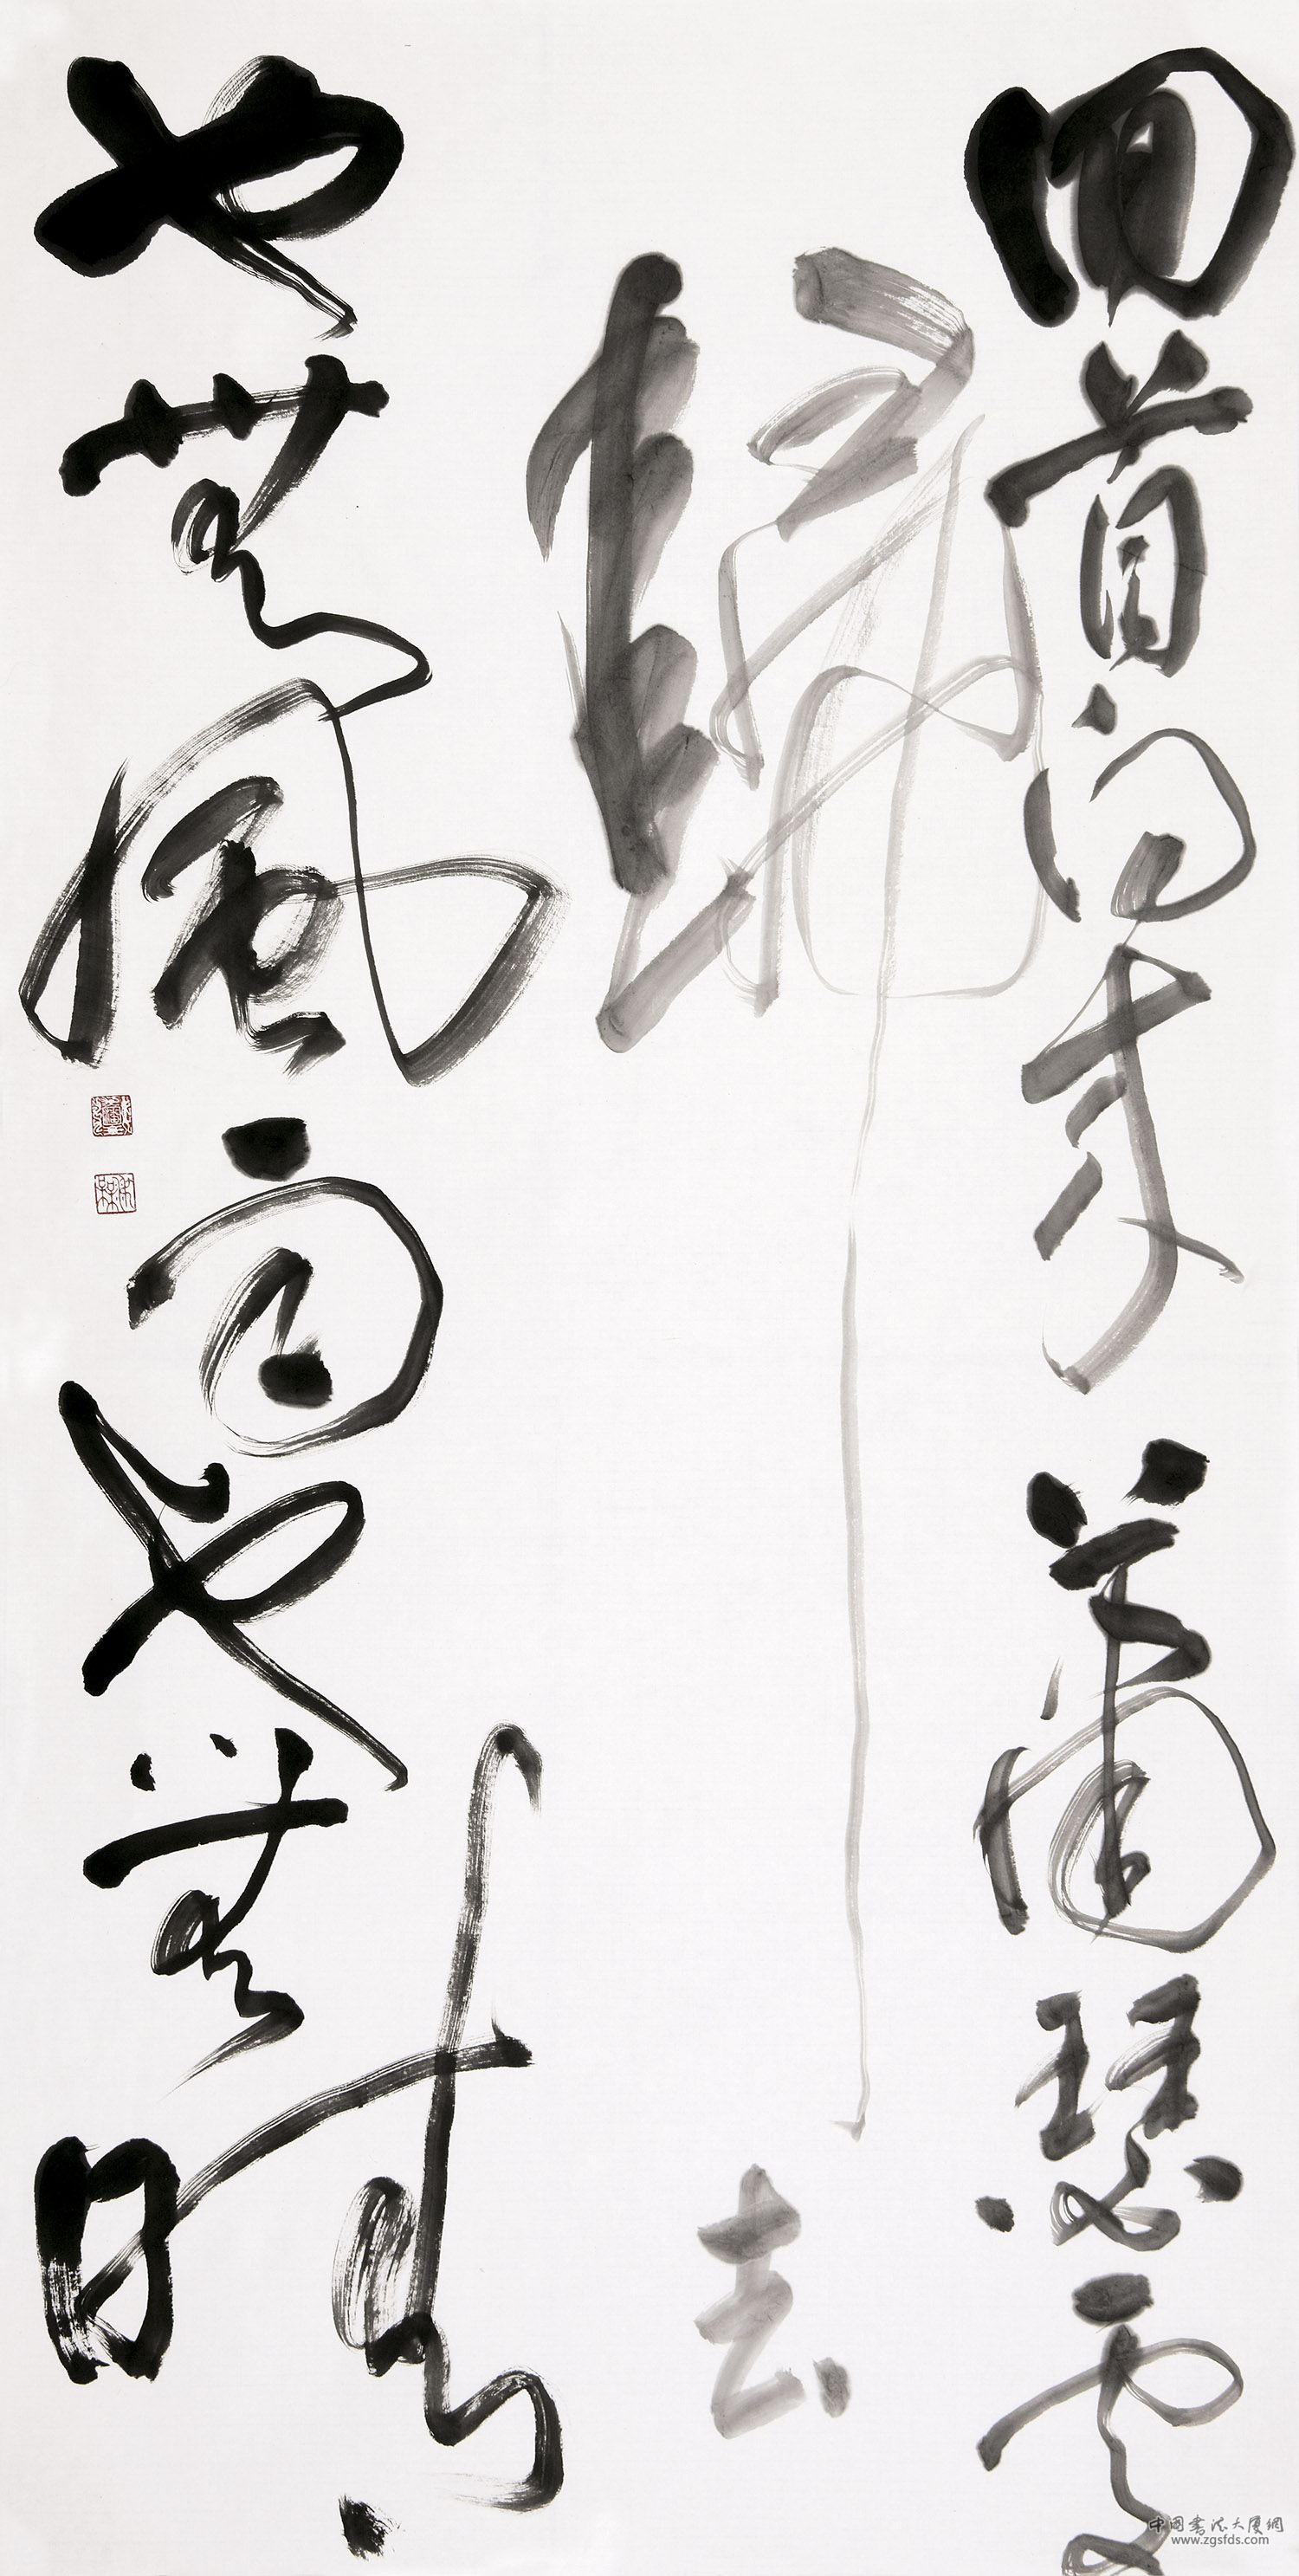 回首向来萧瑟处
归去
也无风雨也无晴
中国书法大厦网
www.zgsfds.com